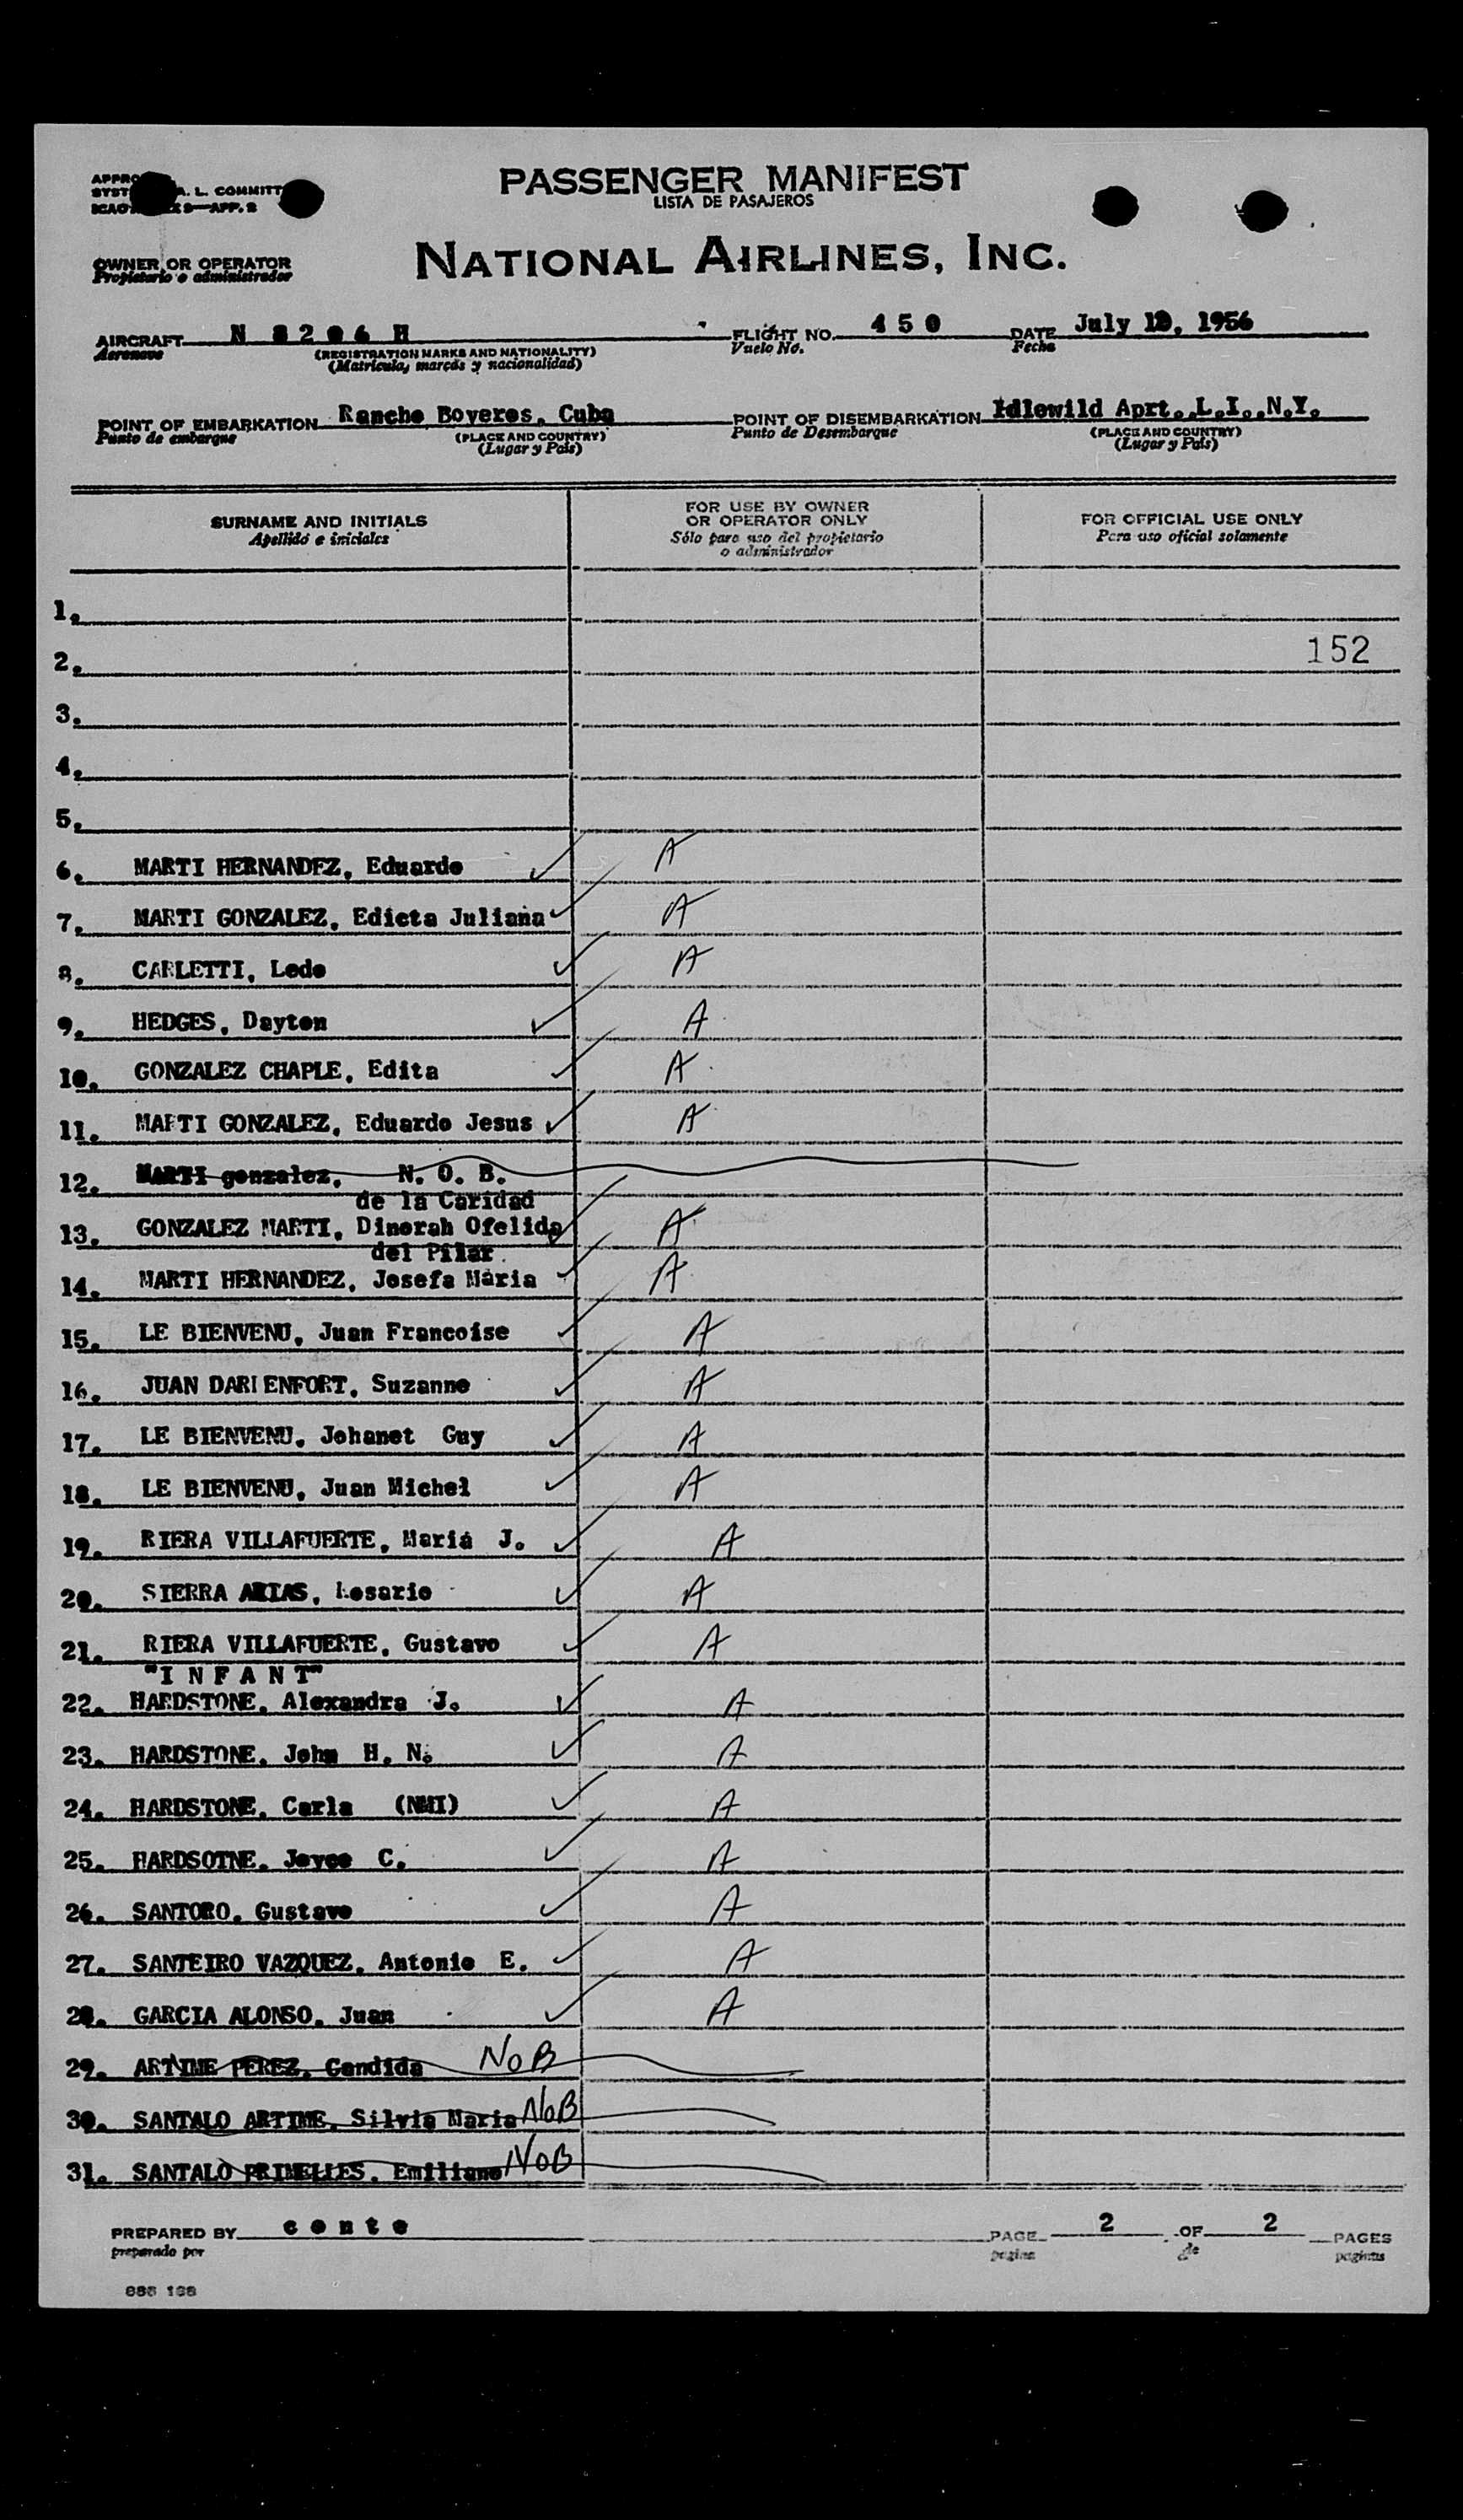 PASSENGER MANIFEST
LISTA DE PASAJEROS
A. L. COMMITT
9—APP. 2
OWNER OR OPERATOR
Propietario o administrador
NATIONAL AIRLINES, INC.
AIRCRAFT N 8206 H FLIGHT NO. 450 DATE July 10, 1956
Aeronave (REGISTRATION MARKS AND NATIONALITY) Vuelo No. Fecha
(Matricula, marcas y nacionalidad)
POINT OF EMBARKATION Rancho Boyeros, Cuba POINT OF DISEMBARKATION Idlewild Aprt., L.I., N.Y.
Punto de embarque (PLACE AND COUNTRY) Punto de Desembarque (PLACE AND COUNTRY)
(Lugar y País) (Lugar y País)
SURNAME AND INITIALS FOR USE BY OWNER OR OPERATOR ONLY FOR OFFICIAL USE ONLY
Apellido e iniciales Sólo para uso del propietario o administrador Para uso oficial solamente
1.
2. 152
3.
4.
5.
6. MARTI HERNANDEZ, Eduardo ✓ A
7. MARTI GONZALEZ, Edicta Juliana ✓ A
8. CARLETTI, Ledo ✓ A
9. HEDGES, Dayton ✓ A
10. GONZALEZ CHAPLE, Edita ✓ A
11. MARTI GONZALEZ, Eduardo Jesus ✓ A
12. MARTI gonzalez, N. O. B.
de la Caridad
13. GONZALEZ MARTI, Dinorah Ofelida ✓ A
del Pilar
14. MARTI HERNANDEZ, Josefa Maria ✓ A
15. LE BIENVENU, Juan Francoise ✓ A
16. JUAN DARIENFORT, Suzanne ✓ A
17. LE BIENVENU, Johanet Guy ✓ A
18. LE BIENVENU, Juan Michel ✓ A
19. RIERA VILLAFUERTE, Maria J. ✓ A
20. SIERRA ARIAS, Rosario ✓ A
21. RIERA VILLAFUERTE, Gustavo ✓ A
"I N F A N T"
22. HARDSTONE, Alexandra J. ✓ A
23. HARDSTONE, John H. N. ✓ A
24. HARDSTONE, Carla (NMI) ✓ A
25. HARDSOTNE, Joyce C. ✓ A
26. SANTORO, Gustavo ✓ A
27. SANTEIRO VAZQUEZ, Antonio E. ✓ A
28. GARCIA ALONSO, Juan ✓ A
29. ARTIME PEREZ, Candida NOB
30. SANTALO ARTIME, Silvia Maria NOB
31. SANTALO PRIMELLES, Emiliano NOB
PREPARED BY conte PAGE 2 OF 2 PAGES
preparado por pagina de paginas